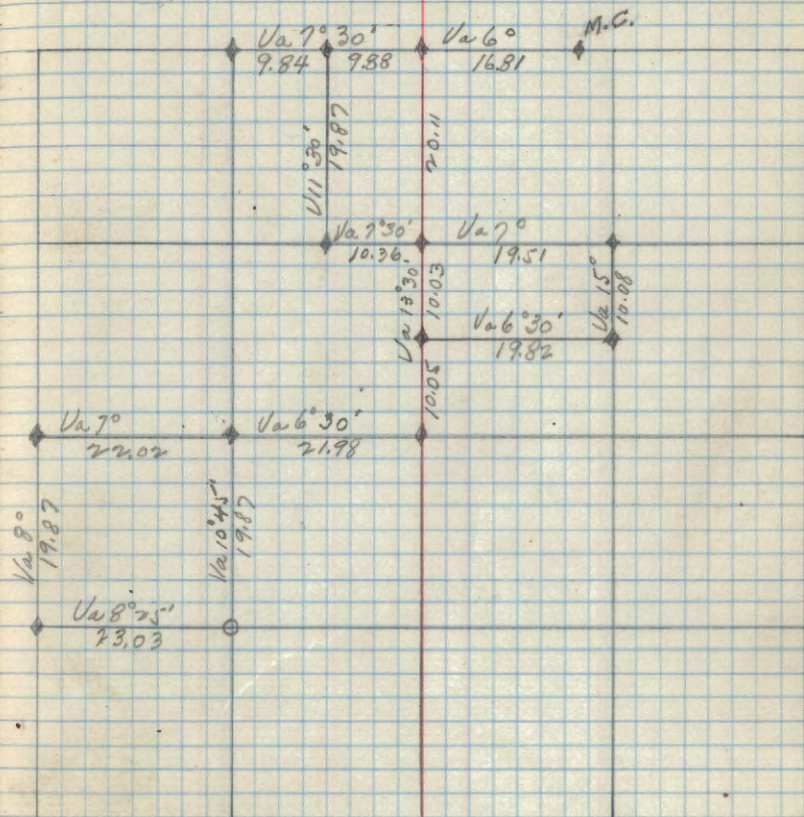 M.C.
Va 7° 30' Va 6°
9.84 9.88 16.81
V 11° 30'
19.87
20.11
Va 7° 30' Va 7°
10.36 19.51
Va 13° 30'
10.03
Va 15°
10.08
Va 6° 30'
19.82
10.05
Va 7° Va 6° 30'
22.02 21.98
Va 8°
19.87
Va 10° 45'
19.87
Va 8° 25'
23.03